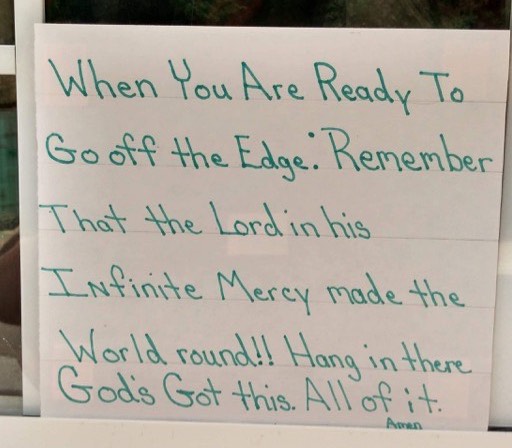 When You Are Ready To
Go off the Edge: Remember
That the Lord in his
Infinite Mercy made the
World round!! Hang in there
God's Got this. All of it.
Amen